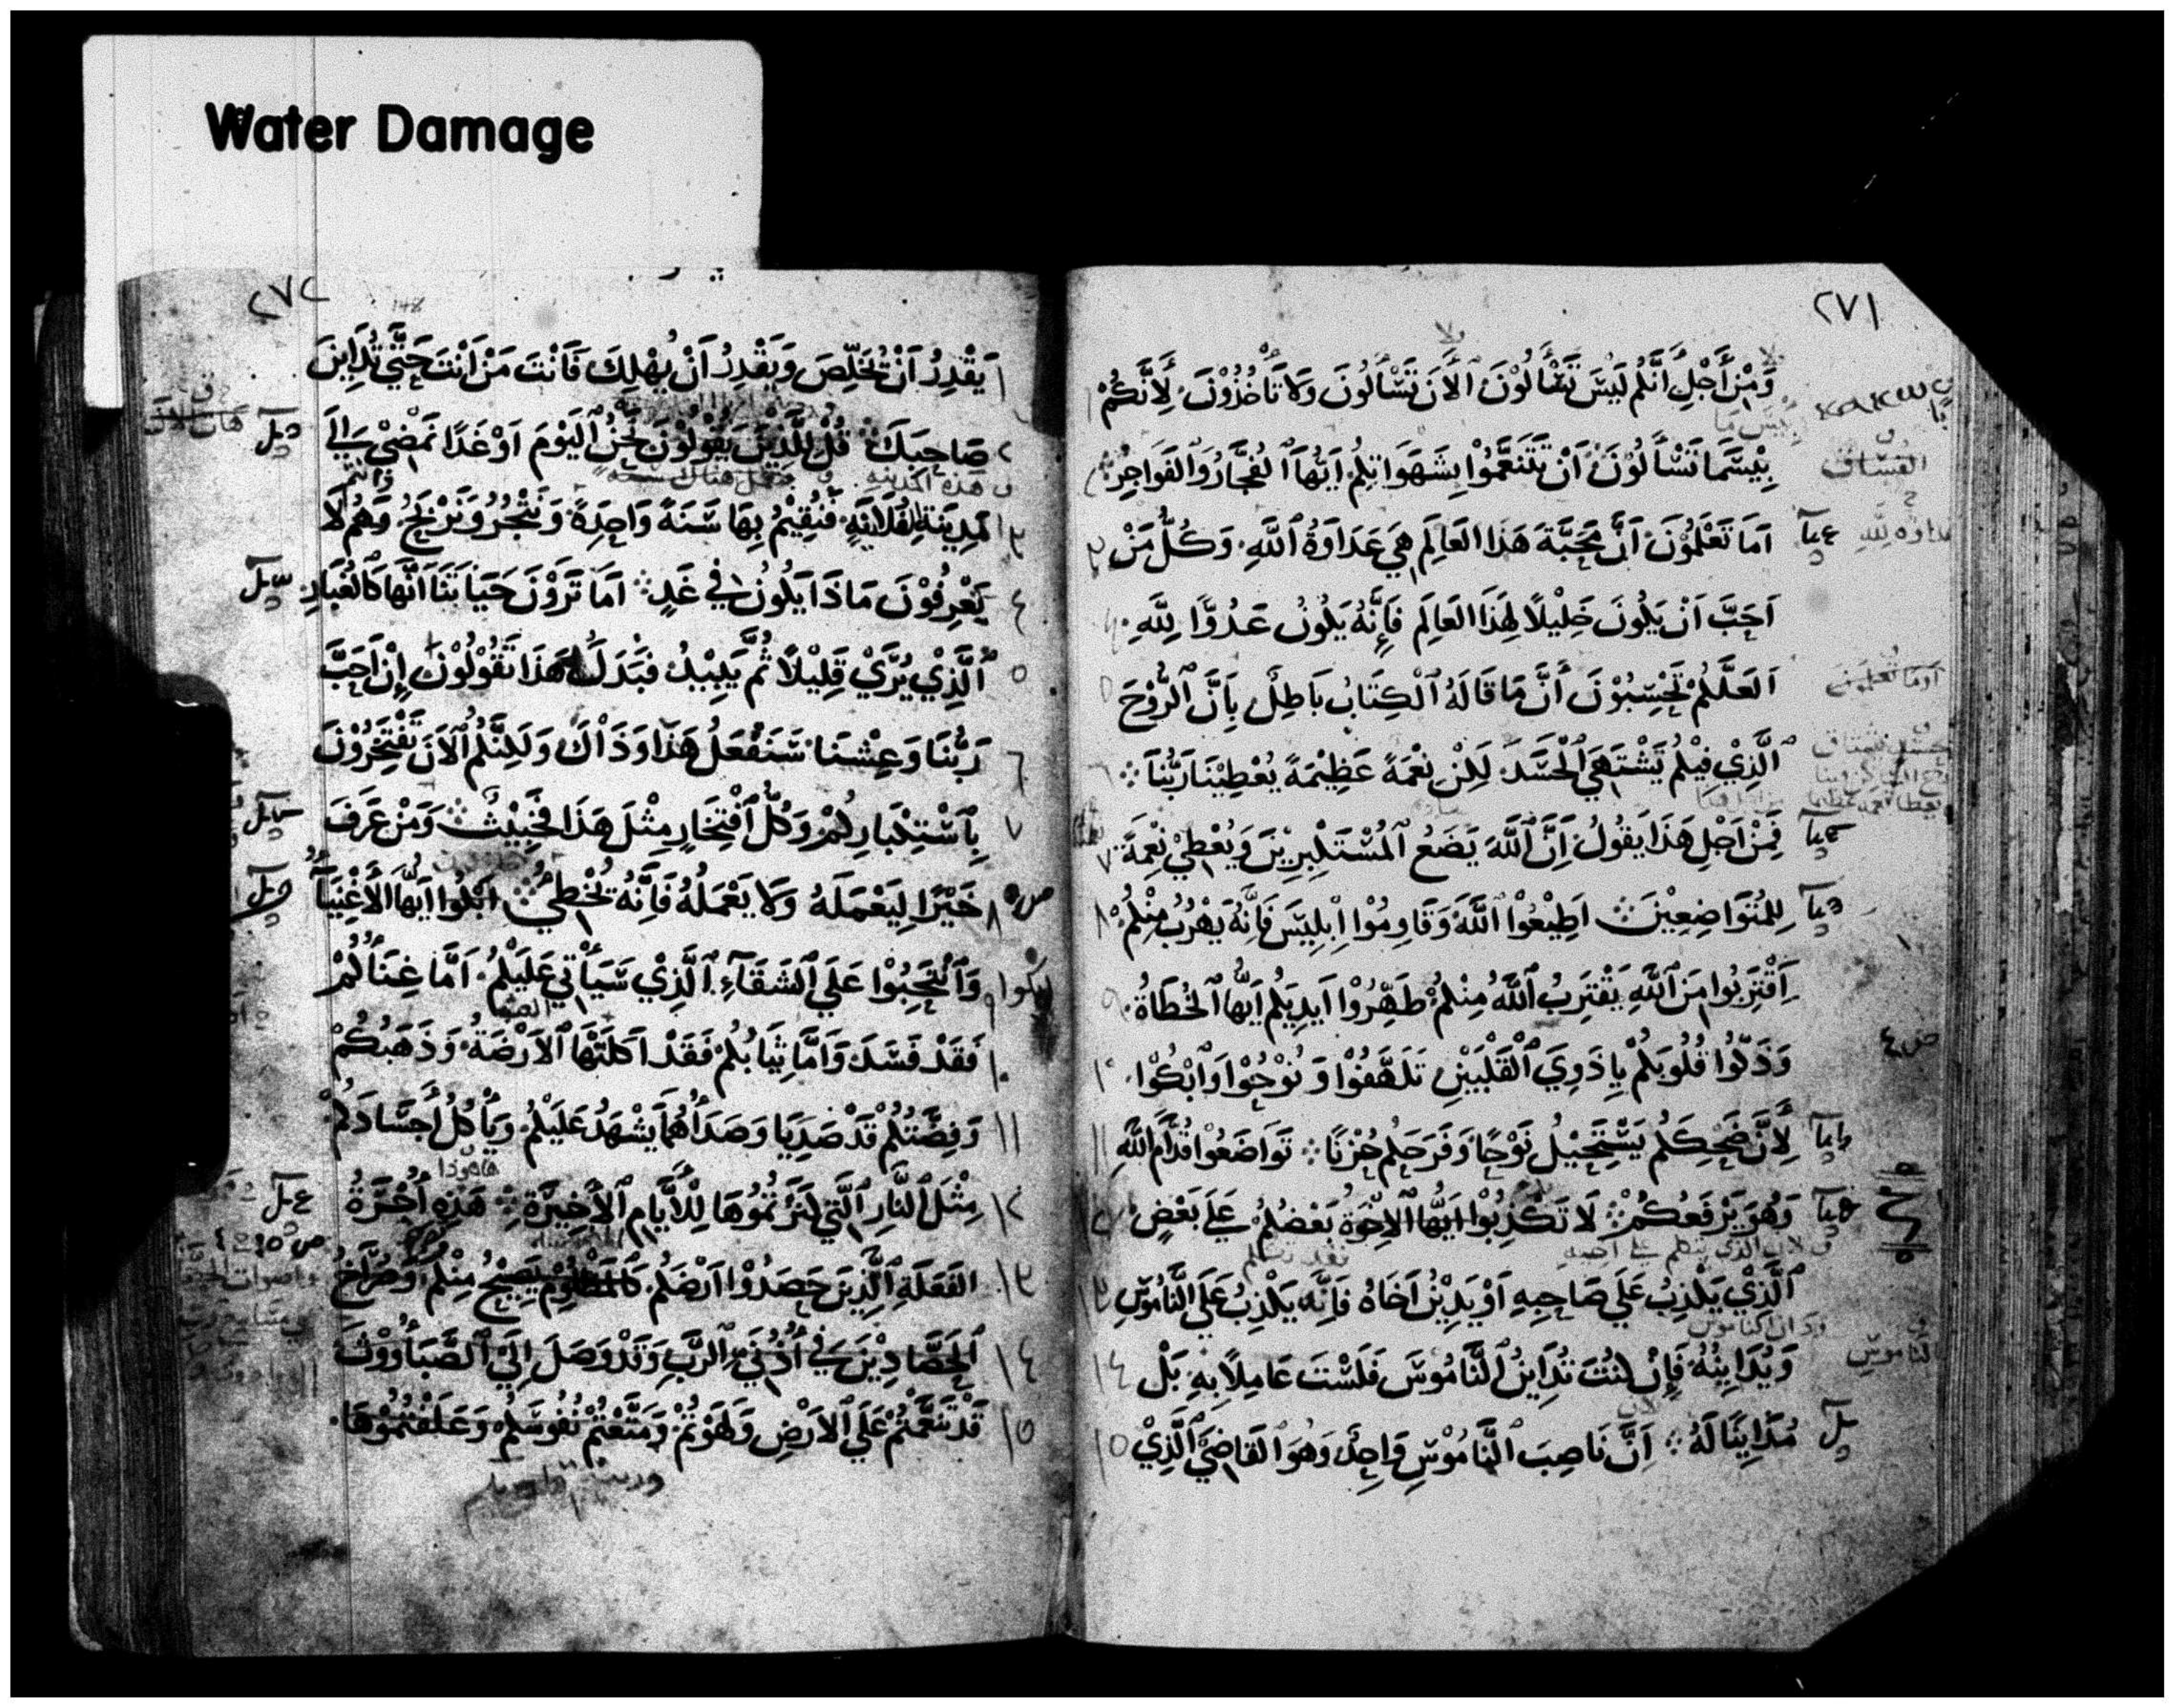 Water Damage
٢٧١
وَمِنْ أَجْلِ أَنَّكُمْ لَيْسَ تَسْأَلُوْنَ اَلْآنَ تَسْأَلُونَ وَلَا تَأْخُذُوْنَ لِأَنَّكُمْ ١
بِيْسَمَا تَسْأَلُوْنَ اَنْ تَتَنَعَّمُوْا بِشَهَوَاتِكُمْ اَيُّهَا ٱلْفُجَّارُ وَٱلْفَوَاجِرُ ٢
اَمَا تَعْلَمُوْنَ اَنَّ مَحَبَّةَ هَذَا العَالَمِ هِيَ عَدَاوَةُ ٱللَّهِ وَكُلُّ مَنْ ٣
اَحَبَّ اَنْ يَكُونَ خَلِيْلًا لِهَذَا العَالَمِ فَإِنَّهُ يَكُونُ عَدُوًّا لِلَّهِ ٤
اَلَعَلَّكُمْ تَحْسِبُوْنَ أَنَّ مَا قَالَهُ ٱلْكِتَابُ بَاطِلٌ بِاَنَّ ٱلرُّوْحَ ٥
ٱلَّذِيْ فِيْكُمْ يَشْتَهِيَ ٱلْحَسَدَ لَكِنْ نِعْمَةً عَظِيْمَةً يُعْطِيْنَا رَبُّنَا ٦
فَمِنْ اَجْلِ هَذَا يَقُولُ اِنَّ ٱللَّهَ يَضَعُ ٱلْمُسْتَكْبِرِيْنَ وَيُعْطِيْ نِعْمَةً ٧
لِلْمُتَوَاضِعِيْنَ اَطِيْعُوْا ٱللَّهَ وَقَاوِمُوْا اِبْلِيْسَ فَاِنَّهُ يَهْرُبُ مِنْكُمْ ٨
اِقْتَرِبُوا مِنَ ٱللَّهِ يَقْتَرِبُ ٱللَّهُ مِنْكُمْ طَهِّرُوْا اَيدِيَكُمْ اَيُّهَا ٱلْخُطَاةُ ٩
وَذَكُّوْا قُلُوبَكُمْ يِا ذَوِيَ ٱلْقَلْبَيْنِ تَلَهَّفُوْا وَنُوْحُوْا وَٱبْكُوْا ١٠
لِأَنَّ ضَحِكَكُم يَسْتَحِيْلُ نَوْحًا وَفَرَحَكُم حُزْنًا تَوَاضَعُوْا قُدَّامَ ٱللَّهِ ١١
وَهُوَ يَرْفَعُكُمْ لَا تَكْذِبُوْا اَيُّهَا ٱلْاِخْوَةُ بَعْضُكُمْ عَلَى بَعْضٍ ١٢
ٱلَّذِيْ يَكْذِبُ عَلَى صَاحِبِهِ اَوْ يَدِيْنُ اَخَاهُ فَاِنَّهُ يَكْذِبُ عَلَى ٱلنَّامُوْسِ ١٣
وَيُدَايِنُهُ فَإِنْ كُنْتَ تُدَايِنُ ٱلنَّامُوْسَ فَلَسْتَ عَامِلًا بِهِ بَلْ ١٤
مُدَايِنًا لَهُ اِنَّ نَاصِبَ ٱلنَّامُوْسِ وَاحِدٌ وَهُوَ القَاضِيَ ٱلَّذِيْ ١٥
الفسّاق
ص ٤
الناموس
٢٧٢
١ يَقْدِرُ اَنْ تُخَلِّصَ وَيَقْدِرُ اَنْ يُهْلِكَ فَاَنْتَ مَنْ اَنْتَ حَتَّى تُدَايِنَ
٢ صَاحِبَكَ قُلْ لِلَّذِيْنَ يَقُوْلُوْنَ نَحْنُ ٱلْيَوْمَ اَوْ غَدًا نَمْضِيْ اِلَى
٣ ٱلْمَدِيْنَةِ ٱلفُلَانِيَّةِ فَنُقِيْمُ بِهَا سَنَةً وَاحِدَةً وَنَتْجُرُ وَنَرْبَحُ وَهُمْ لَا
٤ يَعْرِفُوْنَ مَاذَا يَكُونُ فِي غَدٍ اَمَا تَرَوْنَ حَيَاتَنَا اَنَّهَا كَالْغُبَارِ
٥ ٱلَّذِيْ يُرَىْ قَلِيْلًا ثُمَّ يَبِيْدُ فَبَدَلَ هَذَا تَقُوْلُوْنَ إِنْ اَحَبَّ
٦ رَبُّنَا وَعِشْنَا سَنَفْعَلُ هَذَا وَذَاْكَ وَلَكِنَّكُمُ ٱلْآنَ تَفْتَخِرُوْنَ
٧ بِٱسْتِكْبَارِكُمْ وَكُلُّ ٱفْتِخَارٍ مِثْلَ هَذَا خَبِيْثٌ وَمَنْ عَرَفَ
٨ خَيْرًا لِيَعْمَلَهُ وَلَا يَعْمَلُهُ فَاِنَّهُ تُخْطِئُ ابْكُوا اَيُّهَا الْأَغْنِيَآءُ
٩ وَٱنْتَحِبُوْا عَلَى ٱلشَّقَآءِ ٱلَّذِيْ سَيَأْتِي عَلَيْكُمْ اَمَّا غِنَاكُمْ
١٠ فَقَدْ فَسَدَ وَاَمَّا ثِيَابُكُمْ فَقَدْ اَكَلَتْهَا ٱلْاَرَضَةُ وَذَهَبُكُمْ
١١ وَفِضَّتُكُمْ قَدْ صَدِيَا وَصَدَأُهُمَا يَشْهَدُ عَلَيْكُمْ وَيَأْكُلُ أَجْسَادَكُمْ
١٢ مِثْلَ ٱلنَّارِ ٱلَّتِي كَنَزْتُمُوْهَا لِلْأَيَّامِ ٱلْأَخِيْرَةِ هَذِهِ أُجْرَةُ
١٣ الفَعَلَةِ ٱلَّذِيْنَ حَصَدُوْا اَرْضَكُمْ يَصِيْحُ مِنْكُمْ وَصُرَاخُ
١٤ ٱلْحَصَّادِيْنَ فِي أُذُنَيِ ٱلرَّبِّ وَقَدْ وَصَلَ اِلَى ٱلصَّبَأُوْوْثَ
١٥ قَدْ تَنَعَّمْتُمْ عَلَى ٱلْاَرْضِ وَلَهَوْتُمْ وَمَتَّعْتُمْ نُفُوسَكُمْ وَعَلَفْتُمُوْهَا
ص ٥